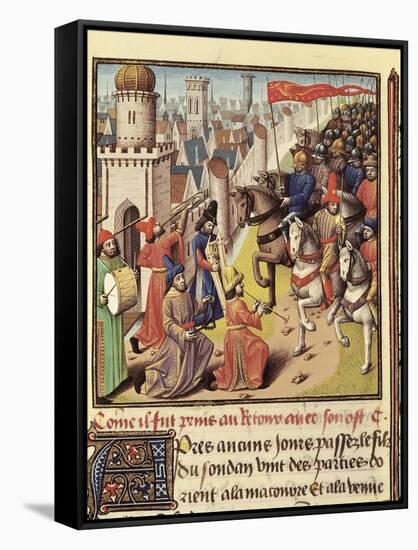 Co͞me il fut prins au Retour auec son ost C
Apres aucuns Jours passez le filz
du soudan vint des parties do
rient a la maconvre Et a la venue